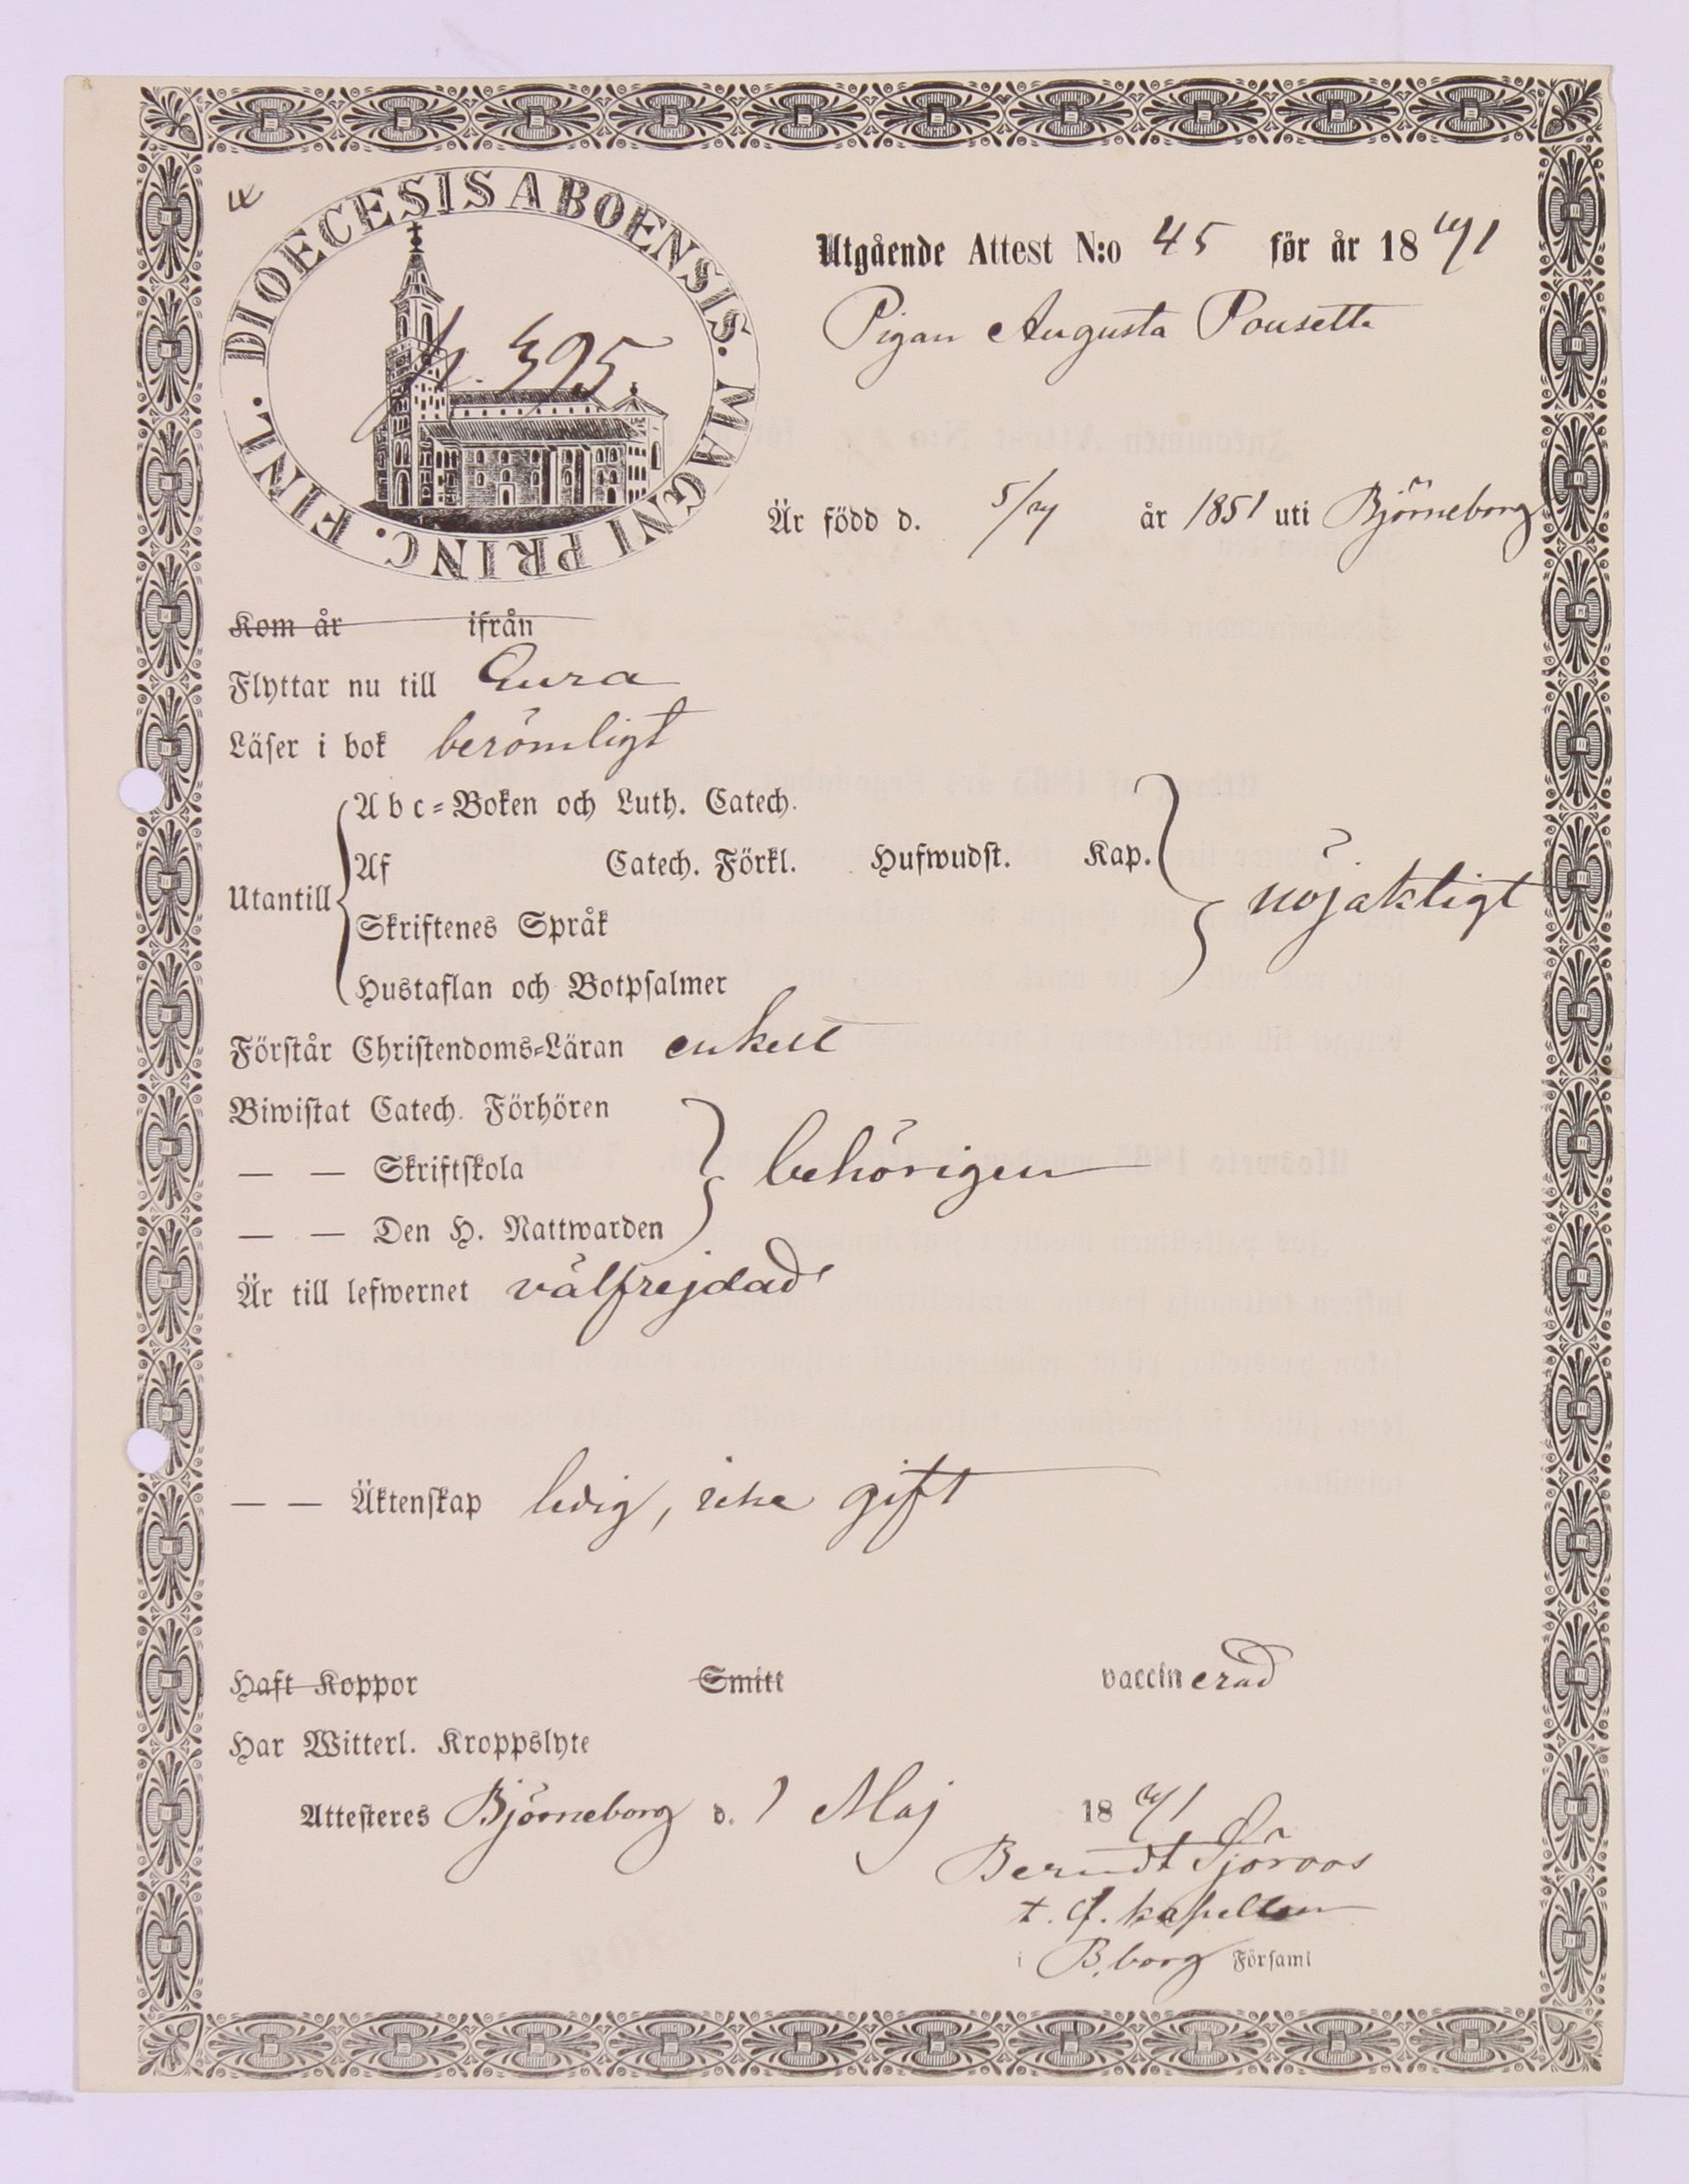 DIOECESIS ABOENSIS. MAGNI PRINC. FINL.
p. 395
Utgående Attest N:o 45 för år 1871
Pigan Augusta Pousette
Är född d. 5/7 år 1851 uti Björneborg
Kom år ifrån
Flyttar nu till Eura
Läser i bok berömligt
Utantill
Abc-Boken och Luth. Catech.
Af Catech. Förkl. Hufwudst. Kap.
Skriftenes Språk
Hustaflan och Botpsalmer
nöjaktigt
Förstår Christendoms-Läran enkelt
Biwistat Catech. Förhören
— — Skriftskola behörigen
— — Den H. Nattwarden
Är till lefwernet välfrejdad
— — Äktenskap ledig, icke gift
Haft Koppor Smitt vaccinerad
Har Witterl. Kroppslyte
Attesteres Björneborg d. 1 Maj 1871
Berndt Sjöroos
t. f. kapellan
i B.borg Församl